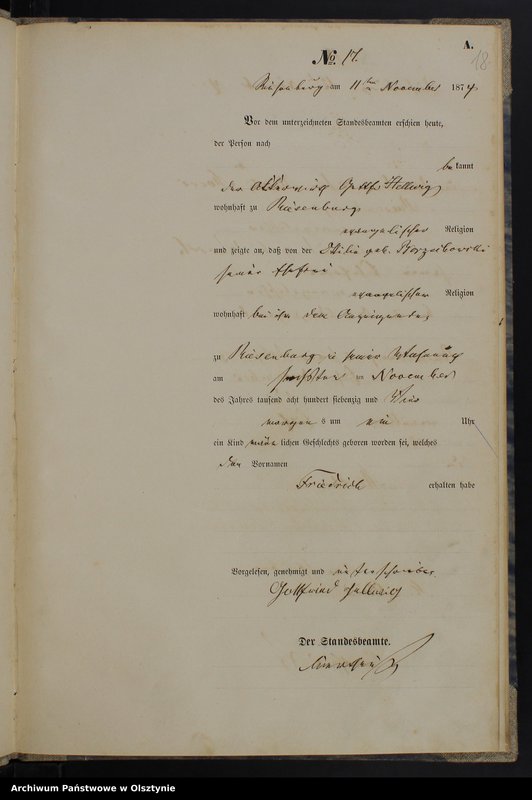 A.
18
No. 17.
Riesenburg am 11ten November 1874
Vor dem unterzeichneten Standesbeamten erschien heute,
der Person nach
bekannt
der Gottf. Hellwig
wohnhaft zu Riesenburg
evangelischer Religion
und zeigte an, daß von der geb.
seiner Ehefrau
evangelischer Religion
wohnhaft bei ihm dem Anzeigenden,
zu Riesenburg in seiner Wohnung
am sechsten im November
des Jahres tausend acht hundert siebenzig und Vier
morgens um ein Uhr
ein Kind männlichen Geschlechts geboren worden sei, welches
den Vornamen
Friedrich erhalten habe
Vorgelesen, genehmigt und unterschrieben
Gottfried Hellwig
Der Standesbeamte.
Archiwum Państwowe w Olsztynie